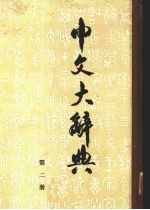 中文大辭典
第二册